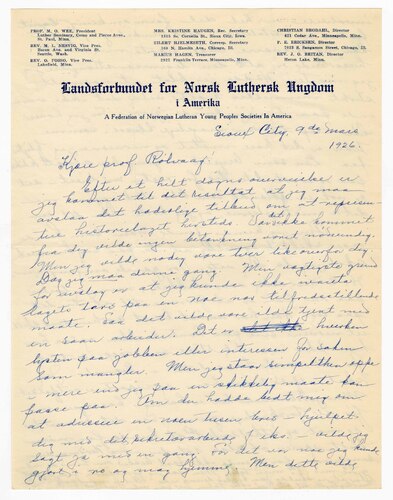 PROF. M. O. WEE, President
Luther Seminary, Como and Pierce Aves.,
St. Paul, Minn.
REV. M. L. NESVIG, Vice Pres.
Seattle, Wash.
REV. O. FOSSO, Vice Pres.
Lakefield, Minn.
MRS. KRISTINE HAUGEN, Rec. Secretary
Sioux City, Iowa.
EILERT HJELMSETH, Corresp. Secretary
Chicago, Ill.
MARIUS HAGEN, Treasurer
1922 Franklin Terrace, Minneapolis, Minn.
CHRISTIAN BRODAHL, Director
425 Cedar Ave., Minneapolis, Minn.
P. E. ERICKSEN, Director
Chicago, Ill.
REV. J. G. BRITAN, Director
Heron Lake, Minn.
Landsforbundet for Norsk Luthersk Ungdom
i Amerika
A Federation of Norwegian Lutheran Young Peoples Societies In America
Sioux City, 9de mars
1926.
Kjære prof Rolvaag.
Efter et helt døgns overveielse er
jeg kommet til det resultat at jeg maa
avslaa det hadelige tilbud om at represen-
tere historielaget hersteds.
fra dig vilde ingen betænkning været nødvendig.
Men jeg vilde nødig være tver likeoverfor dig
Dog jeg maa denne gang. Men vigtigste grund
for avslag er at jeg kunde ikke ivareta
lagets tarv paa en noe nær tilfredsstillende
maate. Saa det vilde være ilde tjent med
en saan arbeider. Det er hverken
lysten paa jobben eller interessen for saken
som mangler. Men jeg staar simpelthen oppe
i mere end jeg paa en skikkelig maate kan
passe paa. Om du hadde bedt mig om
at adressere en noen tusen brev - hjulpet
dig med det sekretærarbeide f. eks. - vilde jeg
sagt ja med en gang. For det var noe jeg kunde
gjort i ro og mag hjemme. Men dette vilde